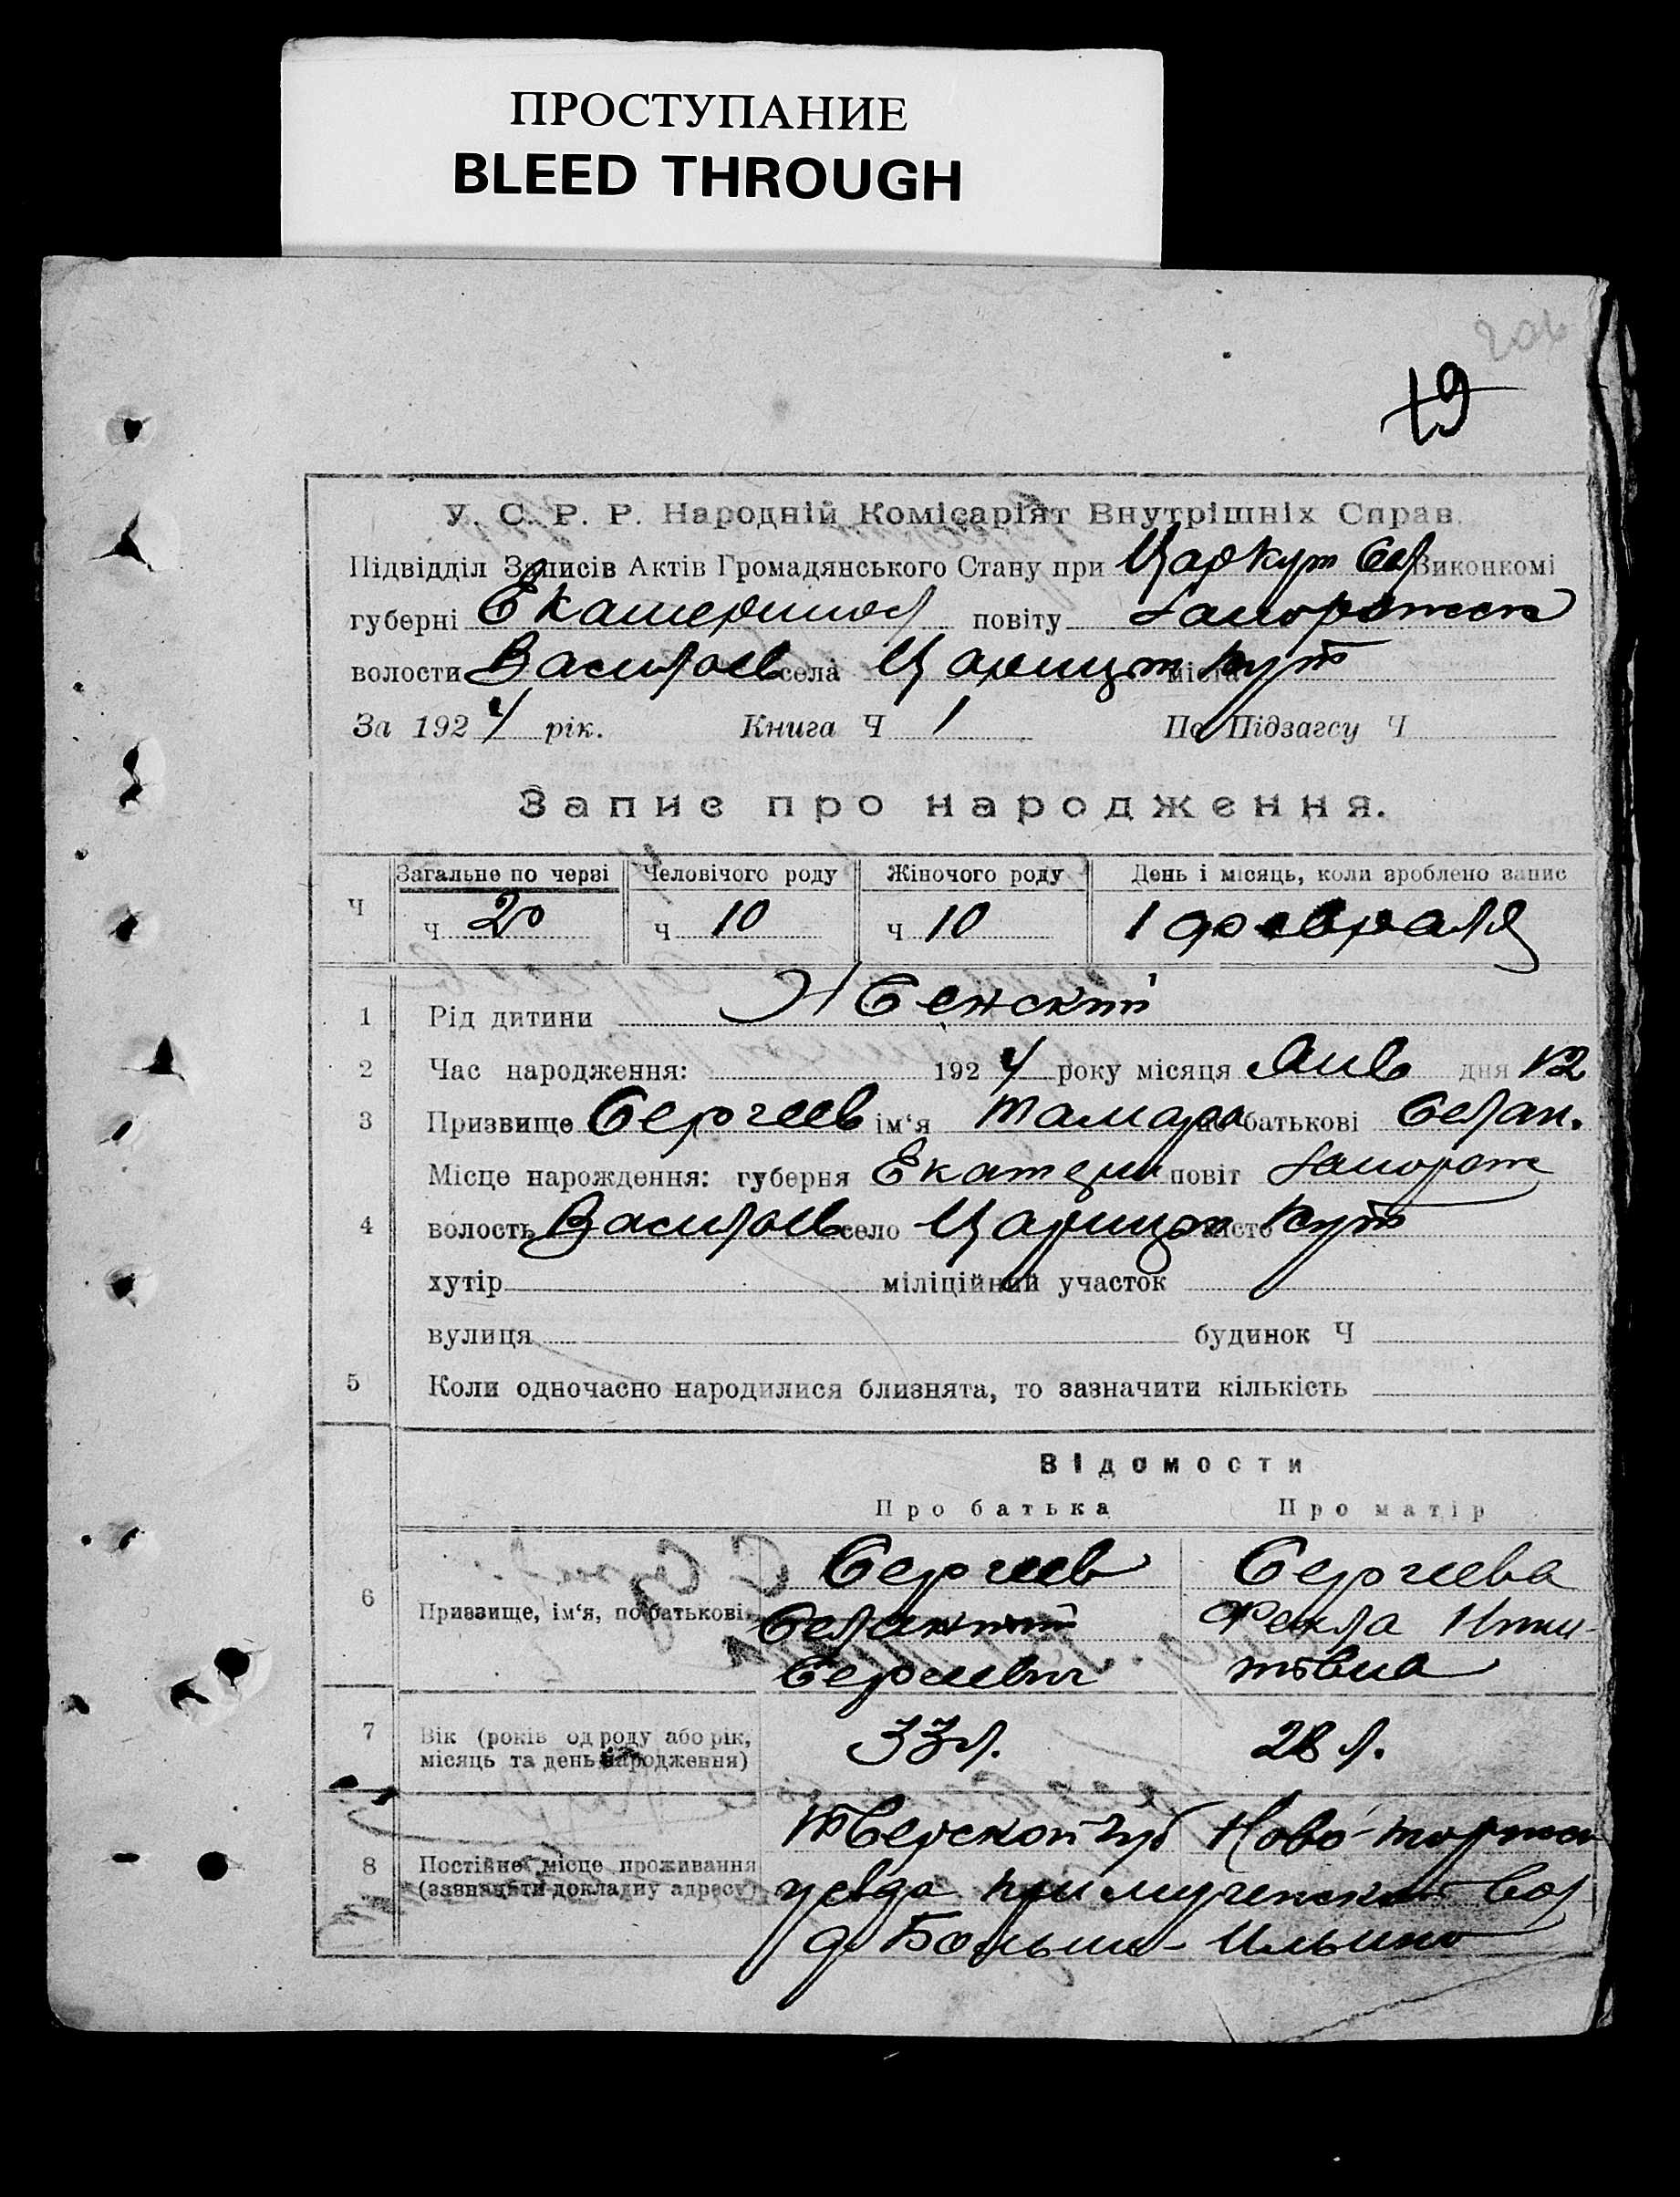 ПРОСТУПАНИЕ
BLEED THROUGH
204
19
У. С. Р. Р. Народній Комісаріят Внутрішніх Справ.
Підвідділ Записів Актів Громадянського Стану при ЦарКут Сел Виконкомі
губерні Екатеринос повіту Запорожск
волости Васильев села Царицын міста Кут
За 1924 рік. Книга Ч 1 По Підзагсу Ч
Запис про народження.
Ч Загальне по черзі Человічого роду Жіночого роду День і місяць, коли зроблено запис
ч 20 ч 10 ч 10 1 февраля
1 Рід дитини Женский
2 Час народження: 1924 року місяця Янв дня 12
3 Призвище Сергеев ім‘я Тамара по батькові Селан.
Місце нарождення: губерня Екатерин повіт Запорож
4 волость Васильев село Царицын місто Кут
хутір міліційний участок
вулиця будинок Ч
5 Коли одночасно народилися близнята, то зазначити кількість
Відомости
Про батька Про матір
6 Призвище, ім‘я, по батькові
Сергеев Сергеева
Селантий Фекла
Сергеевич
7 Вік (років од роду або рік, місяць та день народження) 33 л. 28 л.
8 Постійне місце проживання (зазначити докладну адресу)
Тверской губ Ново-торжск
уезда вол
д. Больше-Ильино